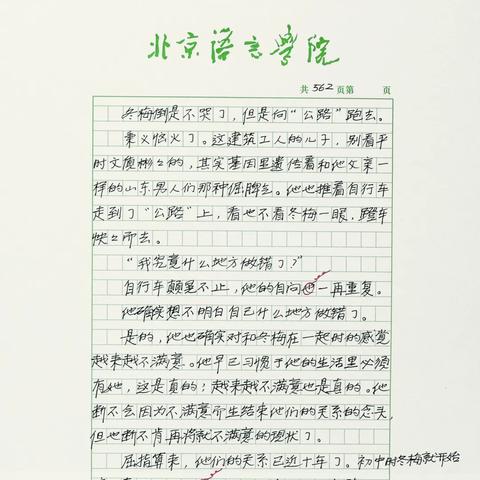 北京语言学院
共562页第 页
冬梅倒是不哭了，但是向“公路”跑去。
秉义恼火了。这建筑工人的儿子，别看平
时文质彬々的，其实基因里遗传着和他父亲一
样的山东男人们那种倔脾气。他也推着自行车
走到了“公路”上，看也不看冬梅一眼，蹬车
怏々而去。
“我究竟什么地方做错了？”
自行车颠簸不止，他的自问也一再重复。
他确实想不明白自己什么地方做错了。
是的，他也确实对和冬梅在一起时的感觉
越来越不满意。他早已习惯于他的生活里必须
有她，这是真的；越来越不满意也是真的。他
断不会因为不满意而生结束他们的关系的念头，
但也断不肯再将就不满意的现状了。
屈指算来，他们的关系已近十年了。初中时冬梅就开始